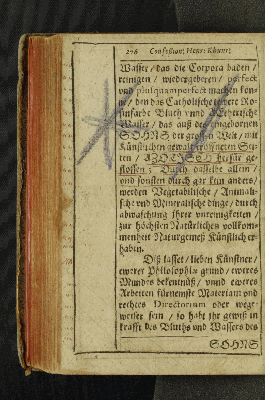 276 Confessio Henr: Khunr:
Wasser / das die Corpora baden /
reinigen / wiedergeberen / perfect
und plusquamperfect machen kön-
ne / den das Catholische edele Ro-
sinfarbe Bluth und Ætherische
Wasser / das auß des eingebornen
SOHNS der grossen Welt / mit
Künstlichen gewalt eröffneten Sei-
ten / AZOTHISCH herfür ge-
flossen; Durch dasselbe allein /
und sonsten durch gar kein anders /
werden Vegetabilische / Animali-
sche und Mineralische dinge / durch
abwaschung Ihrer unreinigkeiten /
zur höchsten Natürlichen vollkom-
menheit Naturgemeß Künstlich er-
haben.
Diß lasset / lieben Künstner /
ewerer Philosophiæ grund / eweres
Mundes bekentnüß / unnd eweres
Arbeiten fürnemste Materiam und
rechtes Directorium oder wege-
weiser sein / so habt ihr gewiß in
krafft des Bluths und Wassers des
SOHNS